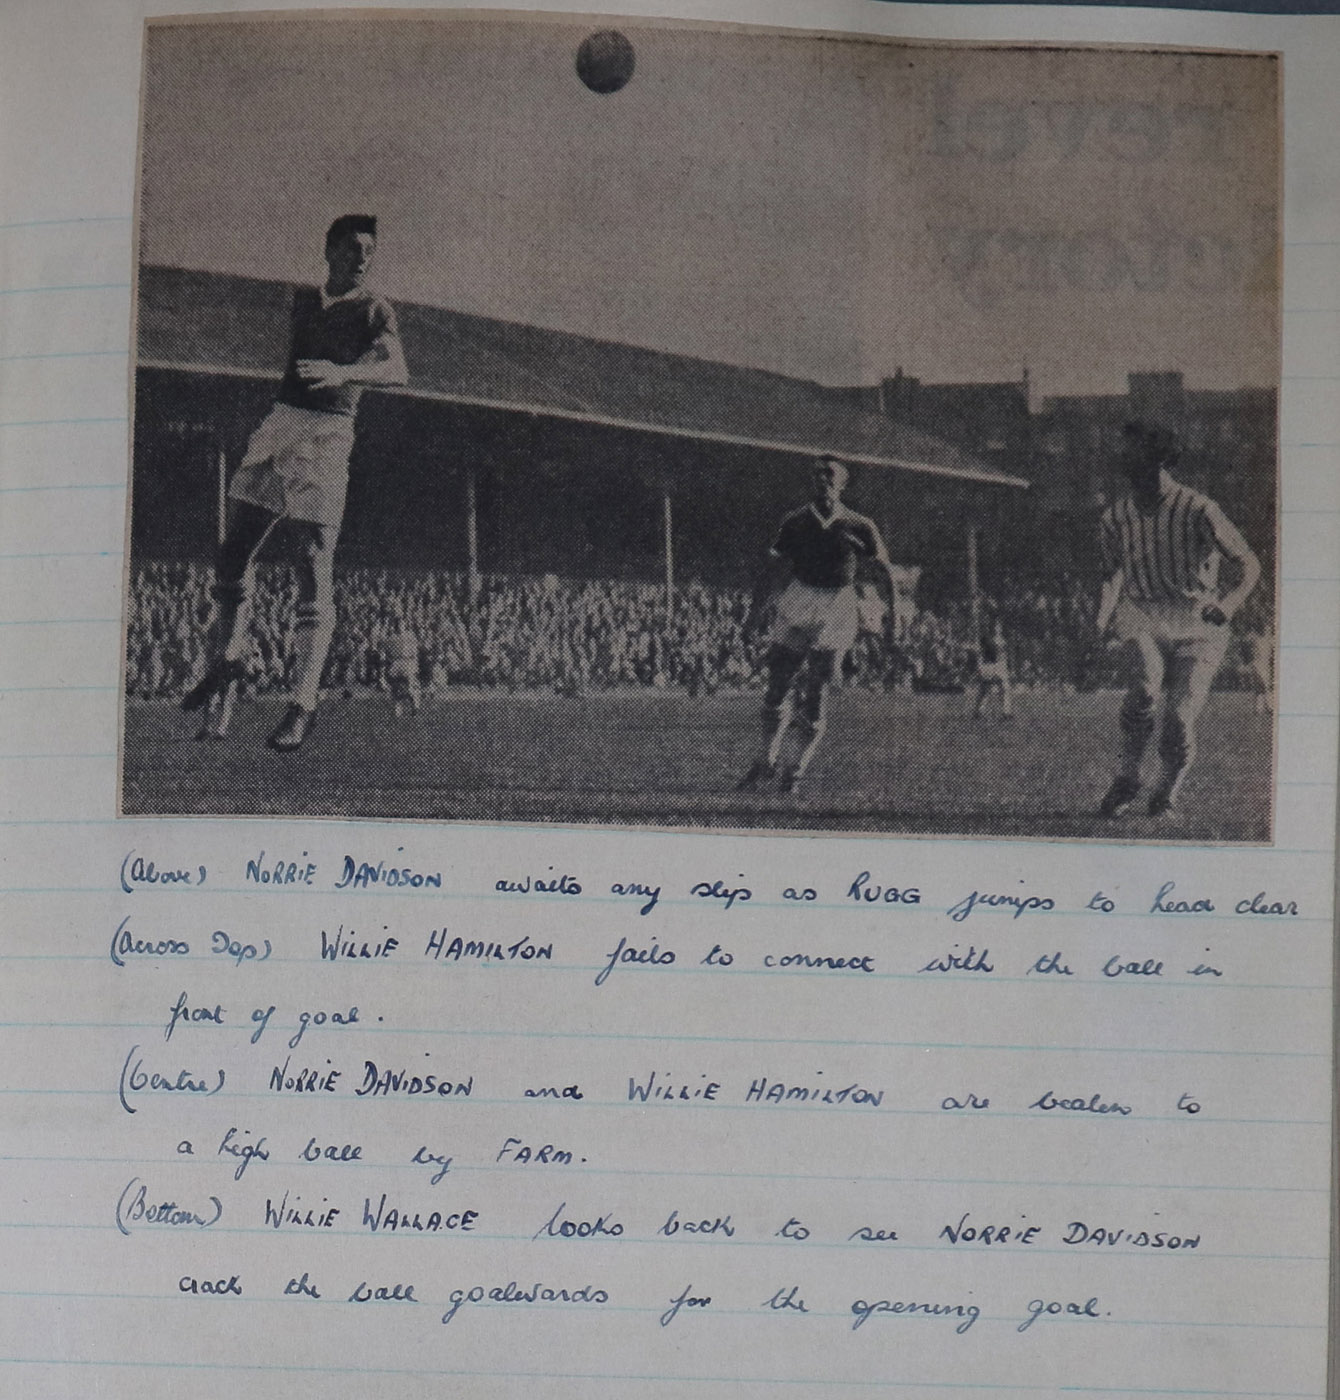 (Above) NORRIE DAVIDSON awaits any slip as RUGG jumps to head clear
(Across Top) WILLIE HAMILTON fails to connect with the ball in
front of goal.
(Centre) NORRIE DAVIDSON and WILLIE HAMILTON are beaten to
a high ball by FARM.
(Bottom) WILLIE WALLACE looks back to see NORRIE DAVIDSON
crack the ball goalwards for the opening goal.